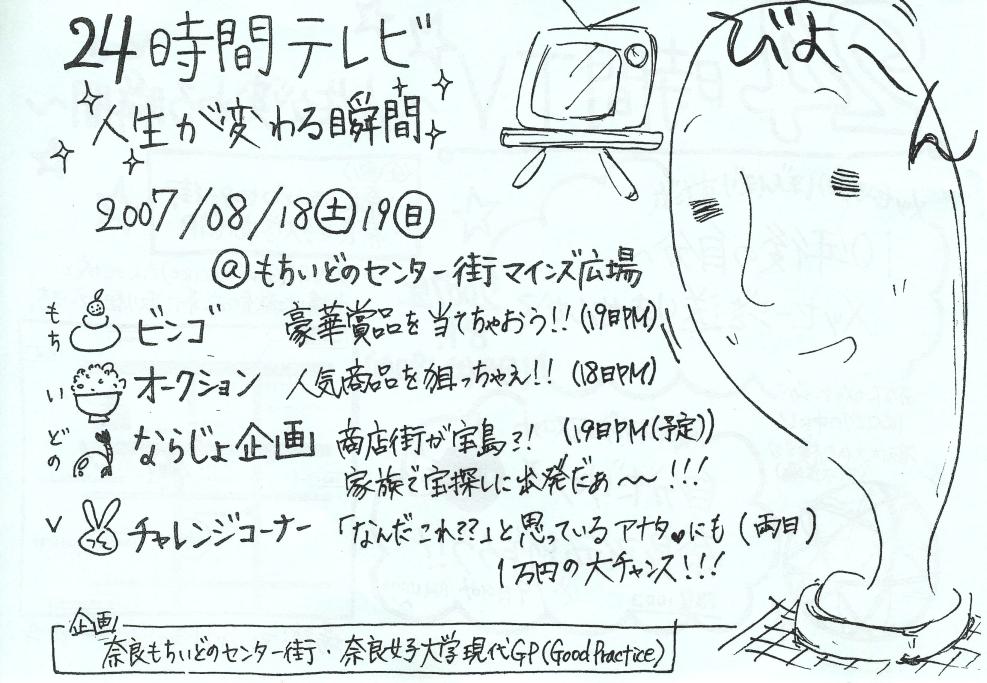 24時間テレビ
人生が変わる瞬間
2007/08/18(土)19(日)
@もちいどのセンター街マインズ広場
もち ビンゴ 豪華賞品を当てちゃおう!!(19日PM)
い オークション 人気商品を狙っちゃえ!!(18日PM)
どの ならじょ企画 商店街が宝島?! (19日PM(予定))
家族で宝探しに出発だぁ〜〜!!!
V チャレンジコーナー 「なんだこれ??」と思っているアナタ♥にも(両日)
1万円の大チャンス!!!
企画
奈良もちいどのセンター街・奈良女子大学現代GP(Good Practice)
びよ〜ん